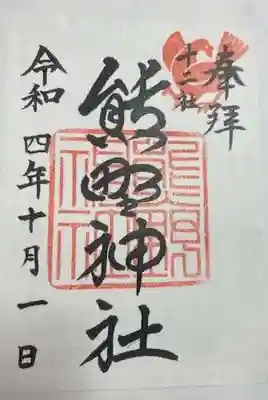 奉拝
十二社
熊野神社
令和四年十月一日